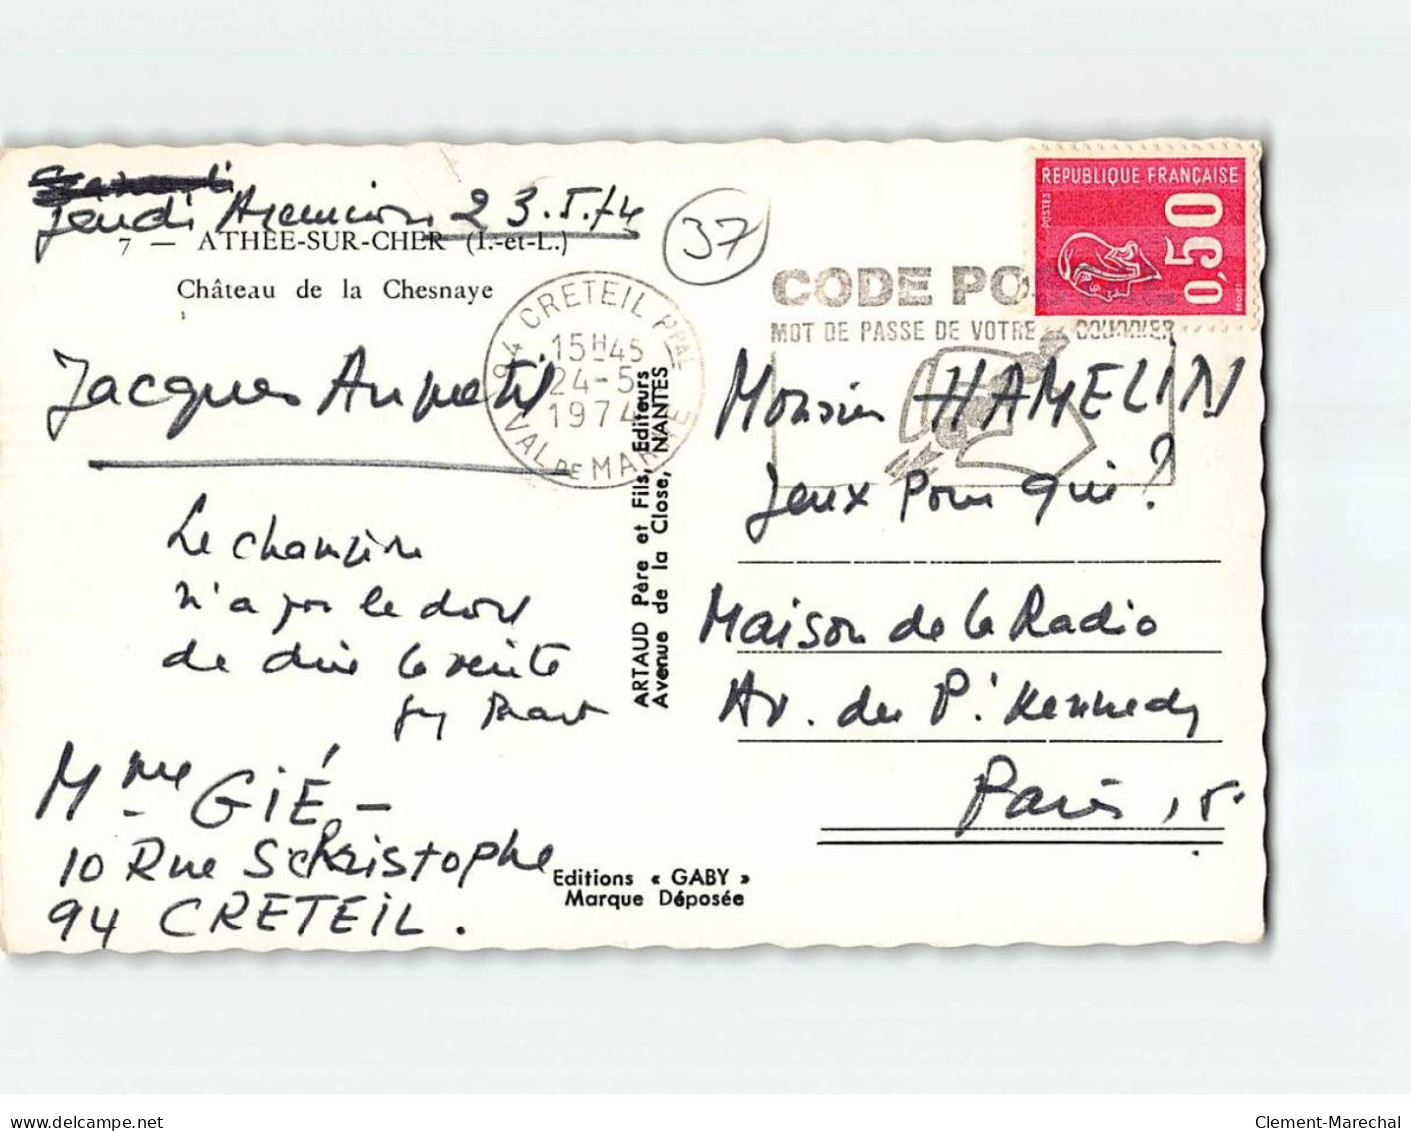 Jeudi Ascension 23.5.74
7 — ATHÉE-SUR-CHER (I.-et-L.)
Château de la Chesnaye
37
94 CRETEIL PPAL
15H45
24-5
1974
VAL DE MARNE
CODE PO
MOT DE PASSE DE VOTRE COURRIER
REPUBLIQUE FRANÇAISE
POSTES
0,50
Jacques
Le
n'a pas le droit
de dire la vérité
Guy Béart
Mme GIÉ -
10 Rue S Christophe
94 CRETEIL.
ARTAUD Père et Fils, Editeurs
Avenue de la Close, NANTES
Editions « GABY »
Marque Déposée
Monsieur HAMELIN
Jeux pour qui?
Maison de la Radio
Av. du P. Kennedy
Paris
delcampe.net
Clement-Marechal